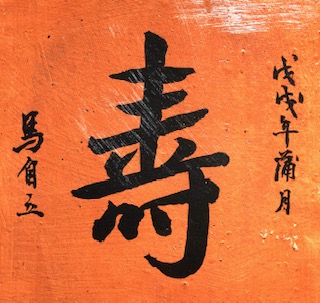 戊戌年蒲月
寿
馬自立